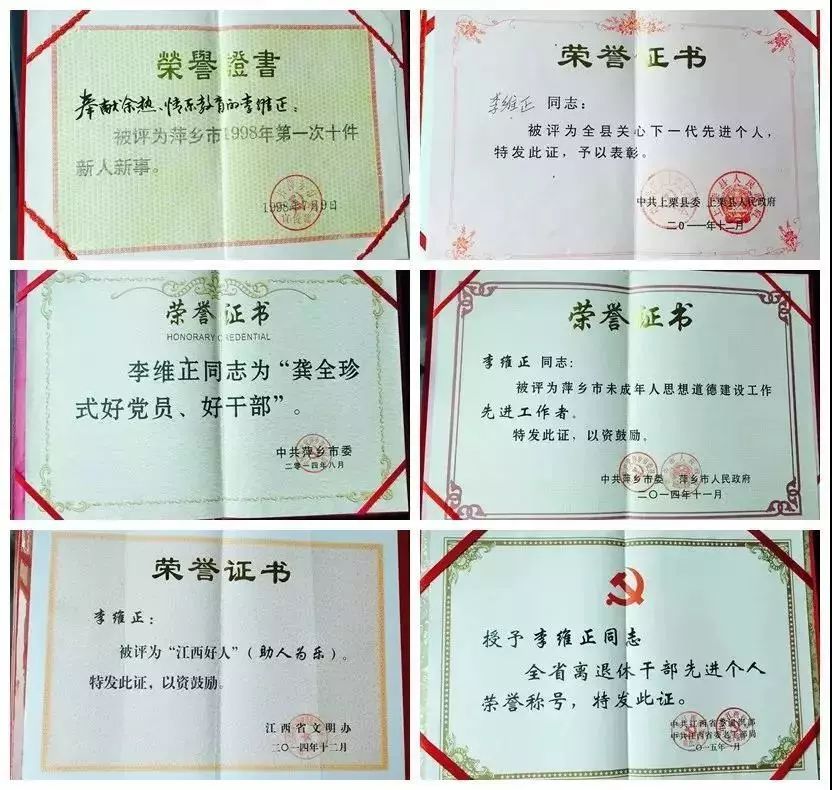 榮譽證書
奉献余热、情系教育的李维正:
被评为萍乡市1998年第一次十件
新人新事。
1998年7月9日
荣誉证书
李维正 同志:
被评为全县关心下一代先进个人,
特发此证,予以表彰。
中共上栗县委 上栗县人民政府
二0一一年十二月
荣誉证书
HONORARY CREDENTIAL
李维正同志为“龚全珍
式好党员、好干部”。
中共萍乡市委
二零一四年八月
荣誉证书
李维正 同志:
被评为萍乡市未成年人思想道德建设工作
先进工作者。
特发此证,以资鼓励。
中共萍乡市委 萍乡市人民政府
二〇一四年十一月
荣誉证书
李维正:
被评为“江西好人”(助人为乐)。
特发此证,以资鼓励。
江西省文明办
二〇一四年十二月
授予李维正同志
全省离退休干部先进个人
荣誉称号,特发此证。
中共江西省委组织部
中共江西省委老干部局
二〇一五年一月